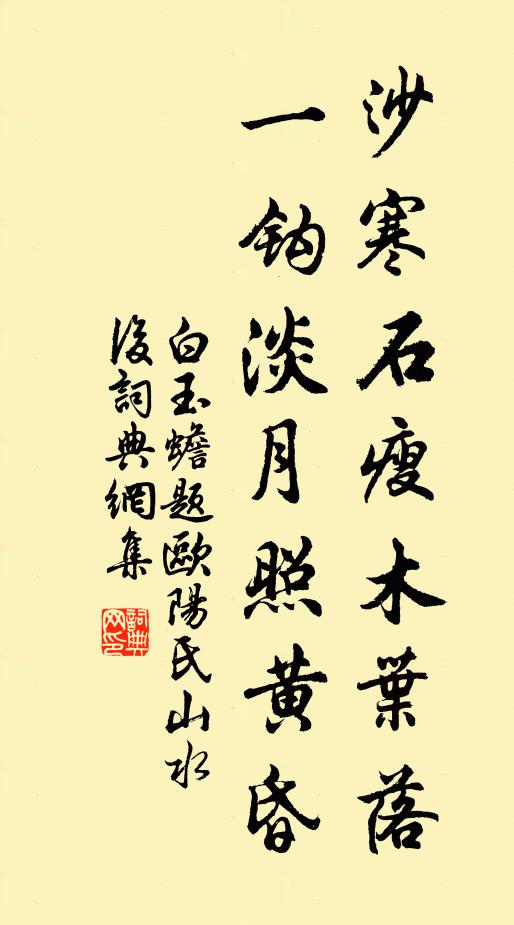 沙寒石瘦木葉落
一鈎淡月照黃昏
白玉蟾題歐陽氏山水
後詞典網集
詞典
网印